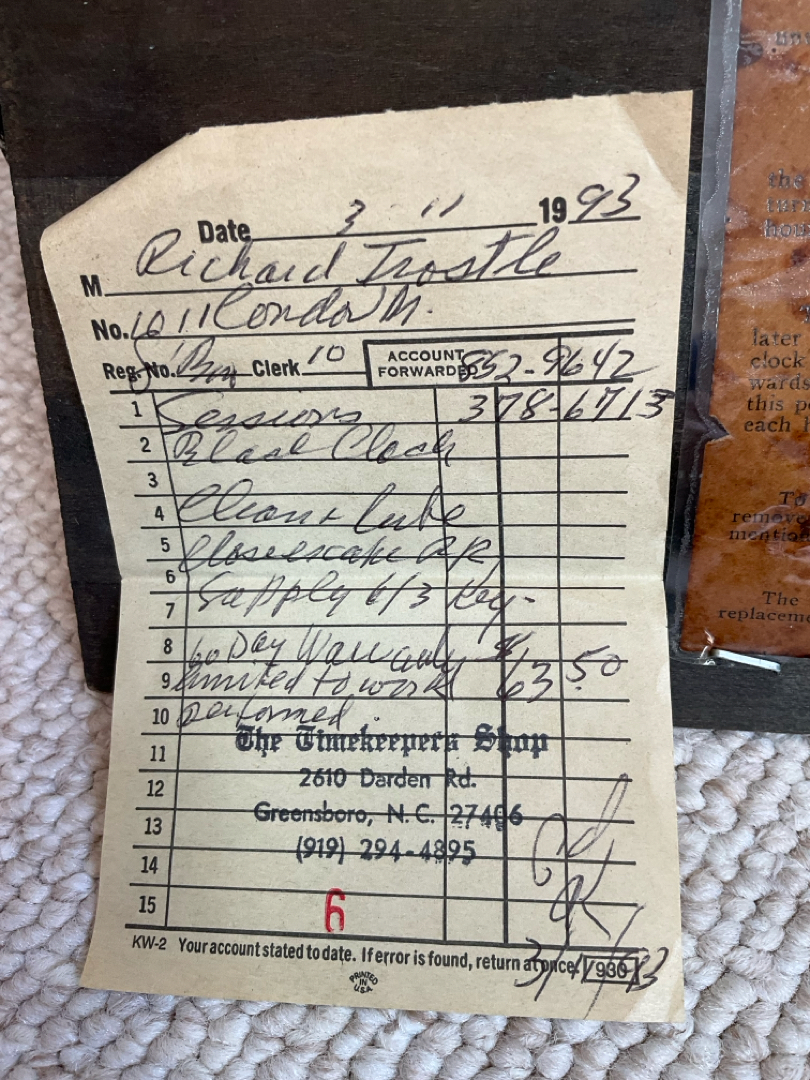 Date 3 - 11 1993
M Richard Trostle
No. 1011 Condor
Reg. No. Clerk 10 ACCOUNT FORWARDED 852-9642
1 Sessions 378-6713
2 Black Clock
3
4 Clean + Lube
5
6
7 Supply 6/3 Key-
8 60 Day Warranty $
9 limited to work 63 50
10 performed.
The Timekeepers Shop
11
2610 Darden Rd.
12
Greensboro, N.C. 27406
13
(919) 294-4895
14
15 6
KW-2 Your account stated to date. If error is found, return at once. 930
PRINTED IN U.S.A.
the
turn
hou
later
clock
wards
this p
each h
To
remove
mentio
The
replaceme